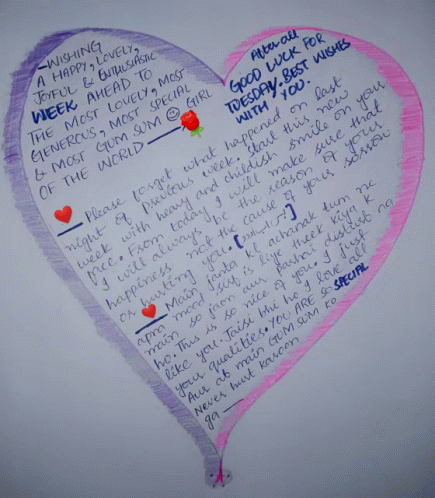 —WISHING
A HAPPY, LOVELY,
JOYFUL & ENTHUSIASTIC
WEEK AHEAD TO
THE MOST LOVELY, MOST
GENEROUS, MOST SPECIAL
& MOST GUM SUM GIRL
OF THE WORLD —
After all
GOOD LUCK FOR
TUESDAY. BEST WISHES
WITH YOU.
— Please forget what happened on last
night of previous week. Start this new
week with heavy and childish smile on your
face. From today I will make sure that
I will always be the season of your
happiness not the cause of your sorrow
or hurting you.
— Main janta kl achanak tum ne
apna mood sirf is liye theek kiya k
main so jaon aur pashai disturb na
ho. This is so nice of you. I just
like you. Jaise bhi ho I love all
your qualities. YOU ARE so SPECIAL
Aur ab main GUM SUM ko
Never hurt karoon
ga —